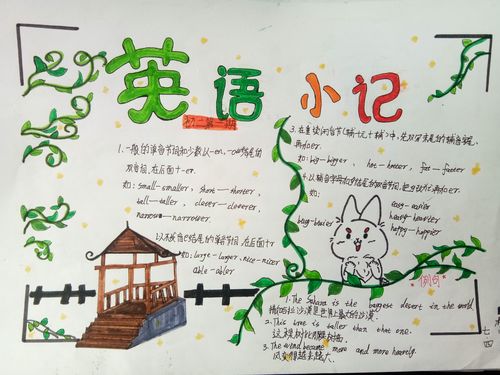 英语小记
初一第一期
1. 一般的单音节词和少数以-er, -ow结尾的
双音节, 在后面+-er.
如: small-smaller, short-shorter,
tall-taller, clever-cleverer,
narrow-narrower
2.以不发音e结尾的单音节词, 在后面+r
如: large-larger, nice-nicer
able-abler
3. 在重读闭音节(辅+元+辅)中, 先双写末尾的辅音字母,
再加er.
如: big-bigger, hot-hotter, fat-fatter
4. 以辅音字母加y结尾的双音节词, 把y改为i再加er.
如:
easy-easier
heavy-heavier
busy-busier happy-happier
例句
1. The Sahara is the biggest desert in the world
撒哈拉沙漠是世界上最大的沙漠.
2. This tree is taller than that one.
这棵树比那棵树高.
3. The wind became more and more heavily.
风变得越来越大.
七
四